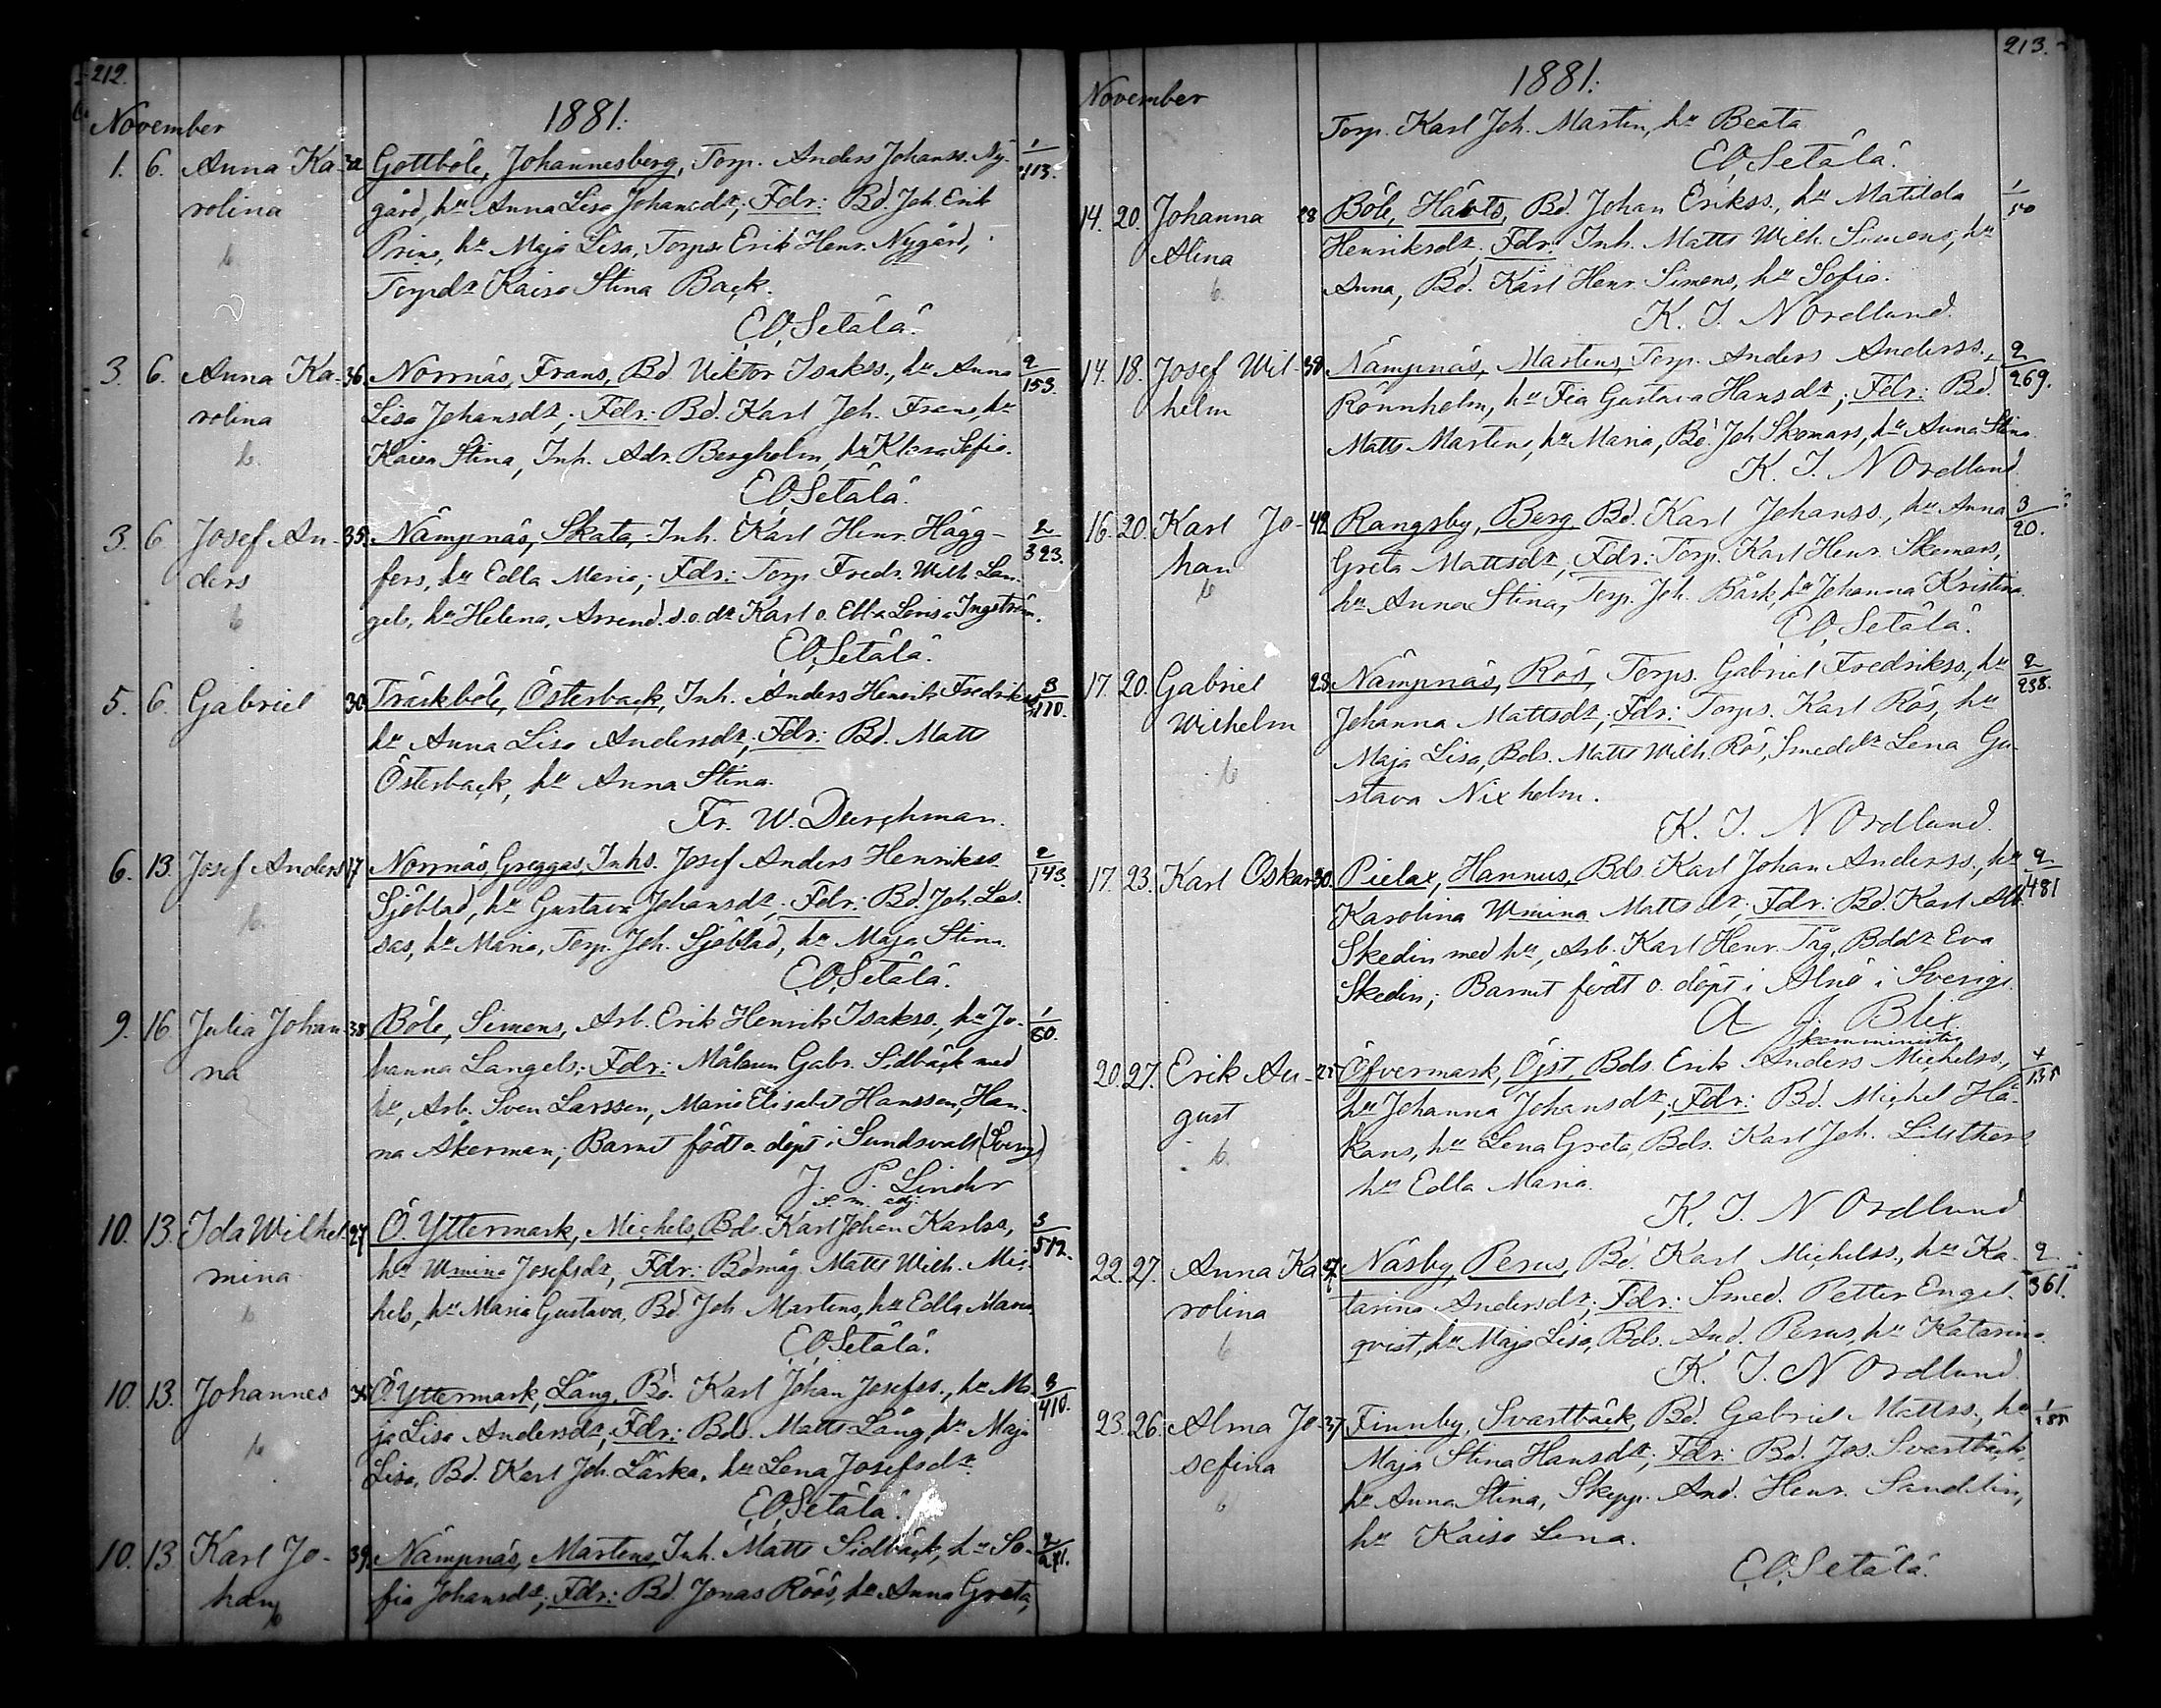 212.
November 1881.
1. 6. Anna Ka- 32 Gottböle, Johannesberg, Torp. Anders Johanss. Ny- 1/113.
rolina gård, hu Anna Lisa Johansdr; Fdr: Bd. Joh. Erik
Prins, hu Maja Lisa, Torps. Erik Henr. Nygård,
Torpdr Kaisa Stina Back.
E.O. Setälä.
3. 6. Anna Ka- 36. Norrnäs, Frans, Bd Viktor Isakss., hu Anna 2/153.
rolina Lisa Johansdr; Fdr: Bd. Karl Joh. Frans, hu
Kaisa Stina, Inh. Adr. Bergholm, hu Klara Sofia.
E.O. Setälä.
3. 6 Josef An- 35. Nämpnäs, Skata, Inh. Karl Henr. Hägg- 2/323.
ders fors, hu Edla Maria; Fdr: Torp. Fredr. Wilh. Lan-
gels, hu Helena, Arrend. s. o. dr Karl o. Ebba Lovisa Ingström.
E.O. Setälä.
5. 6. Gabriel 30 Träskböle, Österback, Inh. Anders Henrik Fredrikss, 3/110.
hu Anna Lisa Andersdr; Fdr: Bd. Matts
Österback, hu Anna Stina.
Fr. W. Durchman.
6. 13. Josef Anders 17 Norrnäs, Greggas, Inhs. Josef Anders Henrikss. 2/143.
Sjöblad, hu Gustava Johansdr; Fdr: Bd. Joh. Las-
sas, hu Maria, Torp. Joh. Sjöblad, hu Maja Stina.
E.O. Setälä.
9. 16. Julia Johan- 38 Böle, Simons, Arb. Erik Henrik Isakss., hu Jo- 1/60.
na hanna Langels; Fdr: Målaren Gabr. Sidbäck med
hu, Arb. Sven Larsson, Maria Elisabet Hansson, Han-
na Åkerman; Barnet född o. döpt i Sundsvall (Sverige)
J. P. Linder
p. m. adj.
10. 13. Ida Wilhel- 27 Ö. Yttermark, Michels, Bds. Karl Johan Karlss, 3/512.
mina hu Wmina Josefsdr, Fdr: Bdmåg Matts Wilh. Mic-
hels, hu Maria Gustava, Bd Joh Martens, hu Edla Maria
E.O. Setälä.
10. 13. Johannes 35 Ö. Yttermark, Lång, Bd. Karl Johan Josefss., hu Ma- 3/410.
ja Lisa Andersdr; Fdr: Bds. Matts Lång, hu Maja
Lisa, Bd. Karl Joh. Lärka, hu Lena Josefsdr.
E.O. Setälä.
10. 13 Karl Jo- 39. Nämpnäs, Martens, Inh. Matts Sidbäck, hu So- 2/271.
han fia Johansdr; Fdr: Bd. Jonas Röös, hu Anna Greta,
213.
November 1881.
Torp. Karl Joh. Martin, hu Beata
E.O. Setälä.
14. 20. Johanna 28 Böle, Härts, Bd. Johan Erikss., hu Matilda 1/50
Alina Henriksdr; Fdr: Inh. Matts Wilh. Simons, hu
Anna, Bd. Karl Henr. Simons, hu Sofia.
K. I. Nordlund.
14. 18. Josef Wil- 30. Nämpnäs, Martens, Torp. Anders Anderss. 2/269.
helm Rönnholm, hu Fia Gustava Hansdr; Fdr: Bd.
Matts Martens, hu Maria, Bd. Joh Skomars, hu Anna Stina.
K. I. Nordlund.
16. 20. Karl Jo- 42 Rangsby, Berg Bd. Karl Johanss., hu Anna 3/20.
han Greta Mattsdr, Fdr: Torp. Karl Henr. Skomars,
hu Anna Stina, Torp. Joh. Bärk, hu Johanna Kristina.
E.O. Setälä.
17. 20. Gabriel 28 Nämpnäs, Rös, Torps. Gabriel Fredrikss, hu 2/238.
Wilhelm Johanna Mattsdr; Fdr: Torps. Karl Rös, hu
Maja Lisa, Bds. Matts Wilh. Rös, Smeddr Lena Gu-
stava Nixholm.
K. I. Nordlund.
17. 23. Karl Oskar 30. Pielax, Hannus, Bds. Karl Johan Anderss., hu 2/481
Karolina Wmina Mattsdr; Fdr: Bd. Karl Alb.
Skedin med hu, Arb. Karl Henr. Tåg, Bddr Eva
Skedin; Barnet födt o. döpt i Alnö i Sverige.
A. J. Blix
komminister
20. 27. Erik Au- 22 Öfvermark, Öjst, Bds. Erik Anders Michelss, 4/135
gust hu Johanna Johansdr; Fdr: Bd. Michel Hå-
kans, hu Lena Greta, Bds. Karl Joh. Lillthors
hu Edla Maria.
K. I. Nordlund
22. 27. Anna Ka- 27. Näsby, Perus, Bd. Karl Michelss., hu Ka- 2/361.
rolina tarina Andersdr; Fdr: Smed. Petter Engel-
qvist, hu Maja Lisa, Bds. And. Perus, hu Katarina.
K. I. Nordlund.
23. 26. Alma Jo- 37 Finnby, Svartbäck, Bd. Gabriel Mattss., hu
sefina Maja Stina Hansdr; Fdr: Bd. Jos. Svartbäck,
hu Anna Stina, Skepp. And. Henr. Sandelin,
hu Kaisa Lena.
E.O. Setälä.